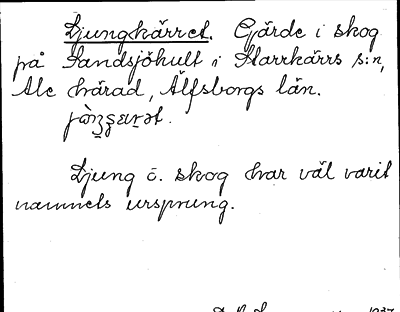 Djungkärret. Gärde i skog
på Sandsjöhult i Starrkärrs s:n,
Ale härad, Älfsborgs län.
Djung ē. skog har väl varit
namnets ursprung.
1937